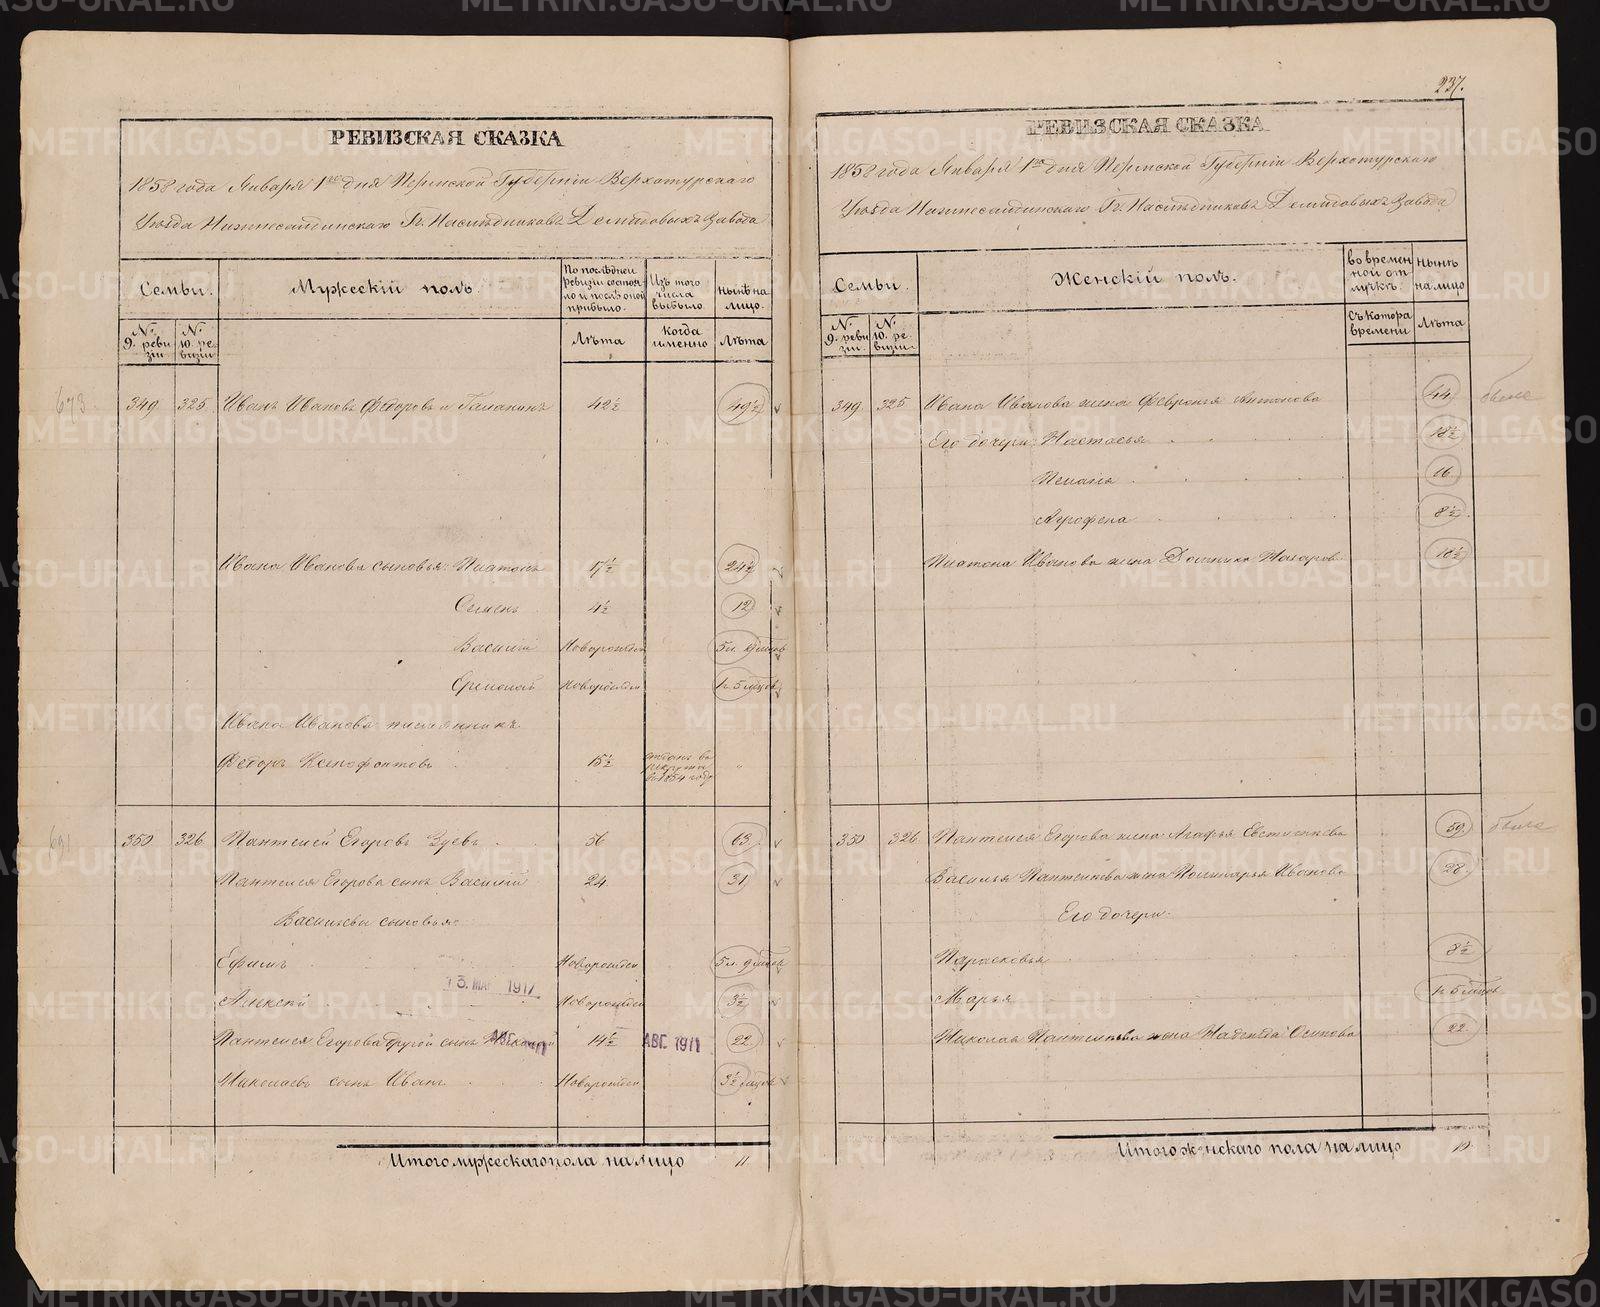 237.
РЕВИЗСКАЯ СКАЗКА
1858 года Января 1го дня Пермской Губернiи Верхотурскаго
Уѣзда Нижнесалдинскаго Гг. Наслѣдниковъ Демидовыхъ Завода
Семьи.
Мужескiй полъ.
По послѣдней ревизiи состояло и послѣ оной прибыло.
Изъ того числа выбыло
нынѣ на лицо.
№. 9. ревизiи
№. 10. ревизiи
Лѣта
когда именно
Лѣта
349 325 Иванъ Ивановъ Федоровъ и 42½ 49½
Ивана Иванова сыновья: Платонъ 17½ 24½
Семенъ 4½ 12
Василiй Новорожден 5 л. 9 мцов
Ермолай Новорожден 1 г. 5 мцов
Ивана Иванова племянникъ
Федоръ Ксенофонтовъ 15½ отданъ въ рекруты въ 1854 году "
350 326 Пантелей Егоровъ Зуевъ 56 63
Пантелея Егорова сынъ Василiй 24 31
Васильевы сыновья:
Ефимъ Новорожден 5 л. 9 мцов
13. МАР 1917
Алексѣй Новорожден 3½
Пантелея Егорова другой сынъ Николай 14½ АВГ. 1971 22
Николаевъ сынъ Иванъ Новорожден 3½ мцов
Итого мужескаго пола на лицо 11
РЕВИЗСКАЯ СКАЗКА
1858 года Января 1го дня Пермской Губернiи Верхотурскаго
Уѣзда Нижнесалдинскаго Гг. Наслѣдниковъ Демидовыхъ Завода
Семьи.
Женскiй полъ.
во временной отлучкѣ.
нынѣ на лицо
№. 9. ревизiи.
№. 10. ревизiи.
Съ котора времени
Лѣта
349 325 Ивана Иванова жена Февронья Антонова 44
Его дочери: Настасья 18½
16
Агрофена 8½
Платона Иванова жена Домника Назаров. 18½
350 326 Пантелея Егорова жена Агафья 59
Василья Пантелеева жена Иванова 28
Его дочери:
Парасковья 8½
Марья 1 г. 5 мцов
Николая Пантелеева жена Надежда Осипова 22
Итого женскаго пола на лицо 10
METRIKI.GASO-URAL.RU